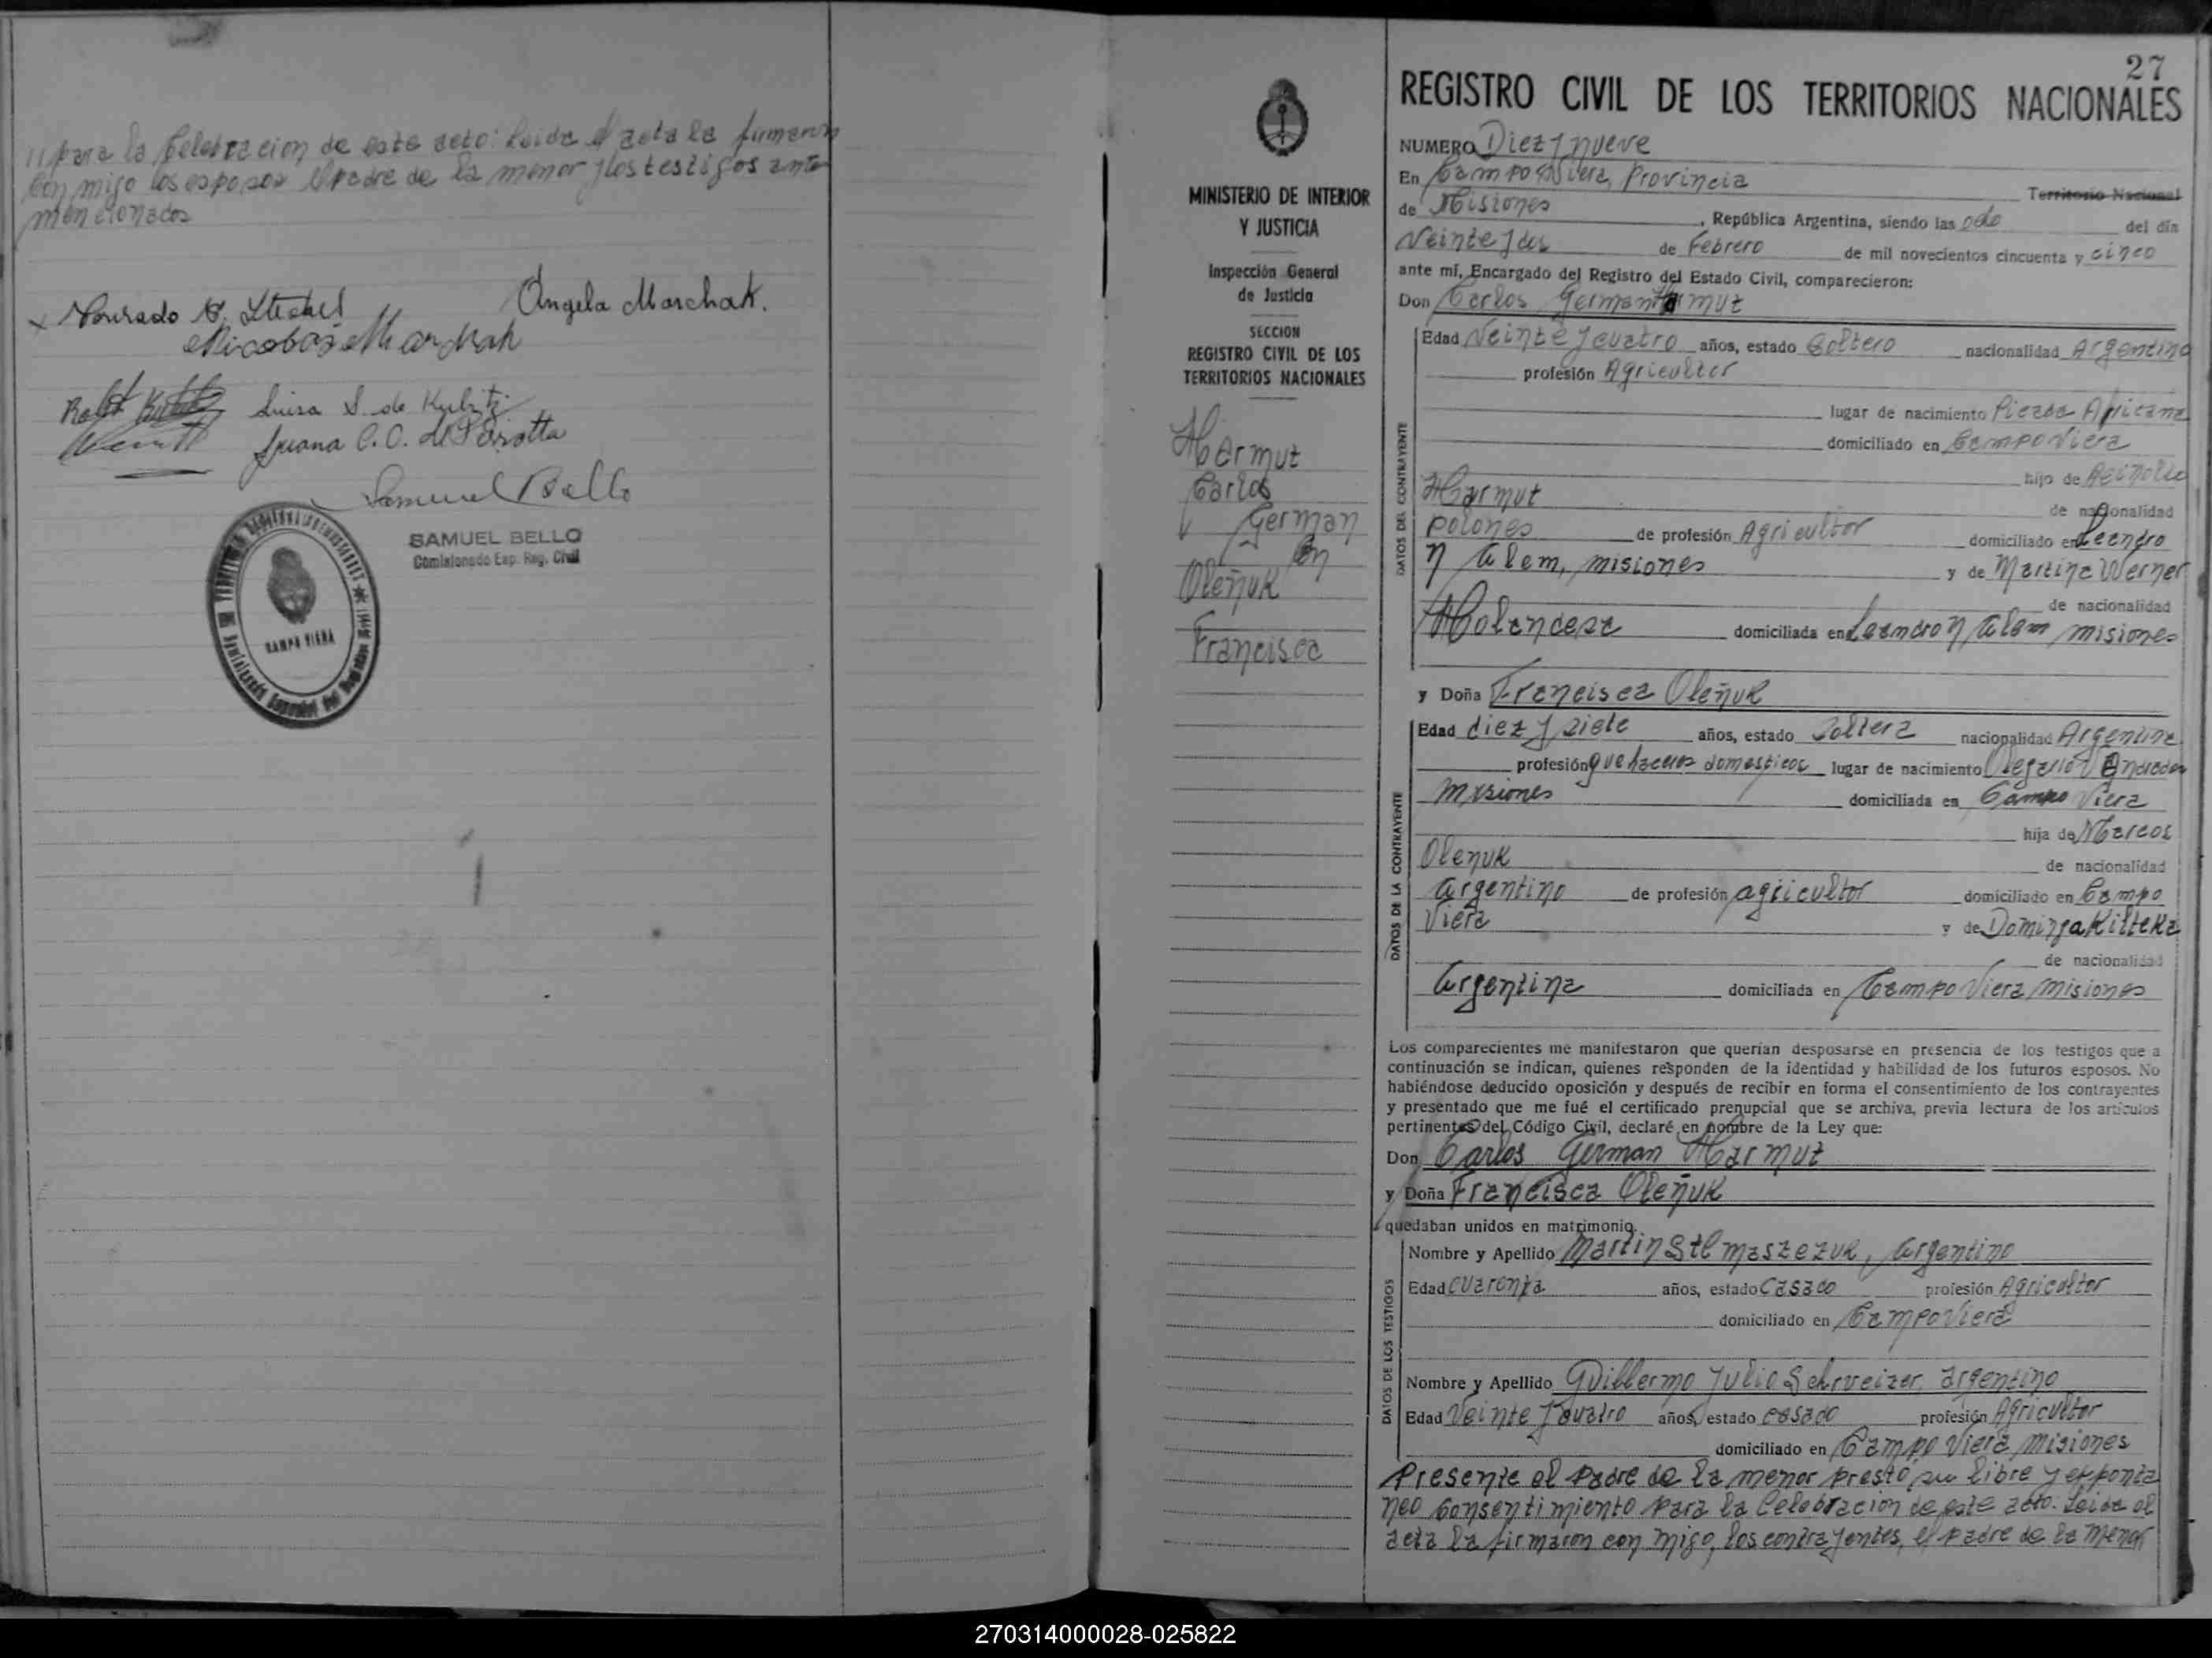 // para la Celebracion de este acto: Leida el acta la firmaron
con migo los esposos el padre de la menor y los testigos ante
mencionados
Angela Marchak.
Marchak
Luisa S. de Kubitz
Juana C. C. de
Samuel Bello
SAMUEL BELLO
Comisionado Esp. Reg. Civil
CAMPO VIERA
MINISTERIO DE INTERIOR
Y JUSTICIA
Inspección General
de Justicia
SECCION
REGISTRO CIVIL DE LOS
TERRITORIOS NACIONALES
Harmut
Carlos
German
En
Oleñuk
Francisca
27
REGISTRO CIVIL DE LOS TERRITORIOS NACIONALES
NUMERO Diez y nueve
En Campo Viera, Provincia Territorio Nacional
de Misiones, República Argentina, siendo las ocho del día
Veinte y dos de Febrero de mil novecientos cincuenta y cinco
ante mí, Encargado del Registro del Estado Civil, comparecieron:
Don Carlos German Harmut
DATOS DEL CONTRAYENTE
Edad Veinte y cuatro años, estado Soltero nacionalidad Argentino
profesión Agricultor
lugar de nacimiento Picada
domiciliado en Campo Viera
hijo de
Harmut de nacionalidad
polones de profesión Agricultor domiciliado en Leandro
N Alem, misiones y de Martina Werner
de nacionalidad
Holandesa domiciliada en Leandro N Alem misiones
y Doña Francisca Oleñuk
DATOS DE LA CONTRAYENTE
Edad diez y siete años, estado Soltera nacionalidad Argentina
profesión quehaceres domesticos lugar de nacimiento Olegario V Andrade
misiones domiciliada en Campo Viera
hija de Marcos
Olenuk de nacionalidad
argentino de profesión agricultor domiciliado en Campo
Viera y de Dominga Kilteka
de nacionalidad
Argentina domiciliada en Campo Viera misiones
Los comparecientes me manifestaron que querían desposarse en presencia de los testigos que a
continuación se indican, quienes responden de la identidad y habilidad de los futuros esposos. No
habiéndose deducido oposición y después de recibir en forma el consentimiento de los contrayentes
y presentado que me fué el certificado prenupcial que se archiva, previa lectura de los artículos
pertinentes del Código Civil, declaré en nombre de la Ley que:
Don Carlos German Harmut
y Doña Francisca Oleñuk
quedaban unidos en matrimonio.
DATOS DE LOS TESTIGOS
Nombre y Apellido Martin Stelmaszezuk, Argentino
Edad cuarenta años, estado Casado profesión Agricultor
domiciliado en Campo Viera
Nombre y Apellido Guillermo Julio Schrveizer, argentino
Edad Veinte y cuatro años, estado casado profesión Agricultor
domiciliado en Campo Viera, misiones
Presente el padre de la menor presto su libre y exponta
neo consentimiento para la Celebracion de este acto. Leida el
acta la firmaron con migo, los contrayentes, el padre de la menor
270314000028-025822